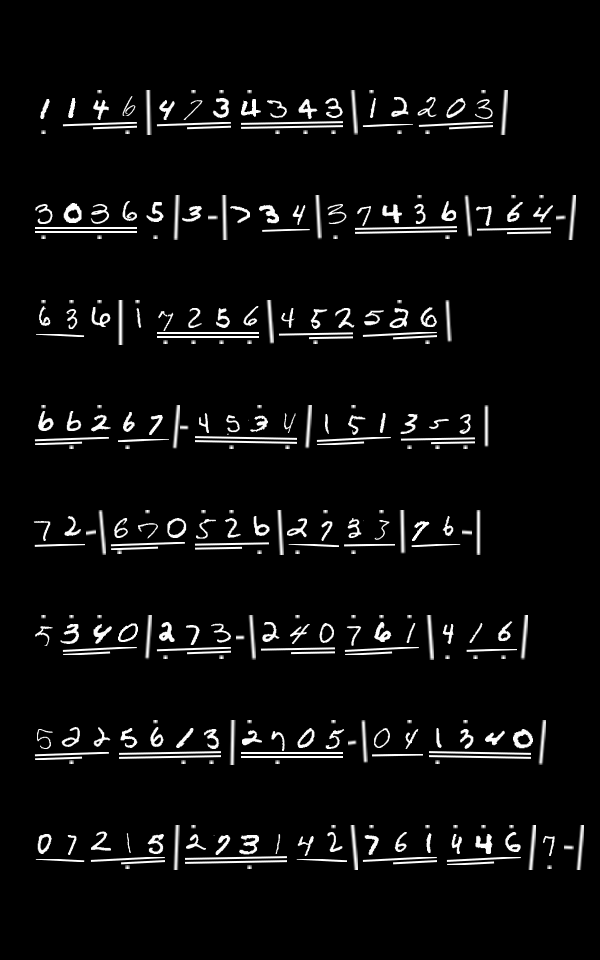 1 1 4 6 | 4 7 3 4 3 4 3 | 1 2 2 0 3 |
3 0 3 6 5 | 3 - | 7 3 4 | 3 7 4 3 6 | 7 6 4 - |
6 3 6 | 1 7 2 5 6 | 4 5 2 5 2 6 |
6 6 2 6 7 | - 4 5 3 4 | 1 5 1 3 5 3 |
7 2 - | 6 7 0 5 2 6 | 2 7 3 3 | 7 6 - |
5 3 4 0 | 2 7 3 - | 2 4 0 7 6 1 | 4 1 6 |
5 2 2 5 6 1 3 | 2 7 0 5 - | 0 4 1 3 4 0 |
0 7 2 1 5 | 2 7 3 1 4 2 | 7 6 1 4 4 6 | 7 - |